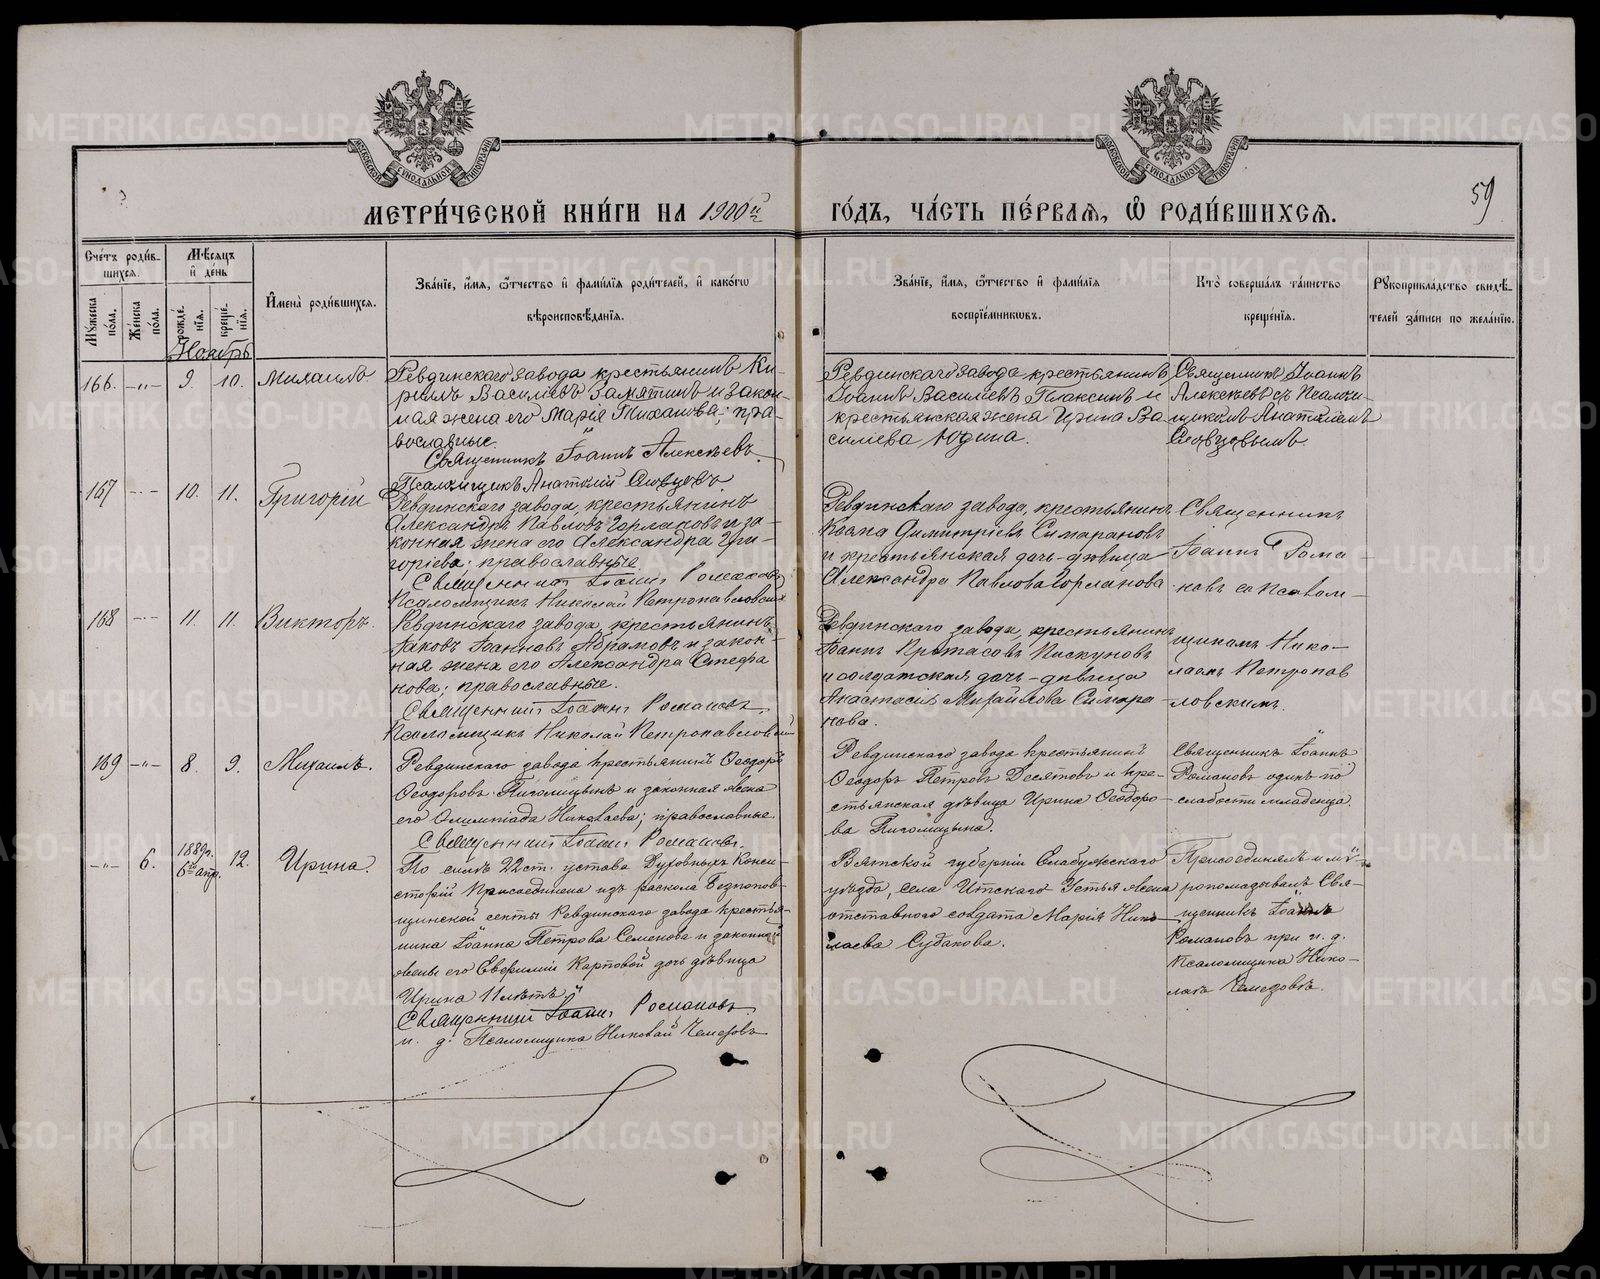 МЕТРИ́ЧЕСКОЙ КНИ́ГИ НА 1900й
ГО́ДЪ, ЧА́СТЬ ПЕ́РВАѦ, Ѽ РОДИ́ВШИХСѦ.
59
Сче́тъ роди́в-
шихсѧ.
Мѣ́сѧцъ
и҆ де́нь
Му́жеска
по́ла.
Же́нска
по́ла.
рожде́-
нїѧ.
креще́-
нїѧ.
И҆мена̀ роди́вшихсѧ.
Зва́нїе, и҆́мѧ, ѻ҆́тчество и҆ фами́лїѧ роди́телей, и҆ како́гѡ
вѣроисповѣ́данїѧ.
Зва́нїе, и҆́мѧ, ѻ҆́тчество и҆ фами́лїѧ
воспрїе́мникѡвъ.
Кто̀ соверша́лъ та́инство
креще́нїѧ.
Рꙋкоприкла́дство свидѣ́-
телей за́писи по жела́нїю.
Ноябрь
166. -„- 9. 10. Михаилъ
Ревдинскаго завода крестьянинъ Ки-
рилъ Васильевъ Замятинъ и закон-
ная жена его Марія Тиханова; пра-
вославные.
Священникъ Іоаннъ Алексѣевъ.
Псаломщикъ Анатолій Словцовъ
Ревдинскаго завода крестьянинъ
Іоаннъ Васильевъ Плаксинъ и
крестьянская жена Ирина Ва
сильева Юдина.
Священникъ Іоаннъ
Алексѣевъ съ Псалом-
щикомъ Анатоліемъ
Словцовымъ.
167 -„- 10. 11. Григорій
Ревдинскаго завода, крестьянинъ
Александръ Павловъ Горлановъ и за-
конная жена его Александра Гри-
горіева; православные.
Священникъ Іоаннъ Романовъ
Псаломщикъ Николай Петропавловскій
Ревдинскаго завода, крестьянинъ
Димитріевъ Симарановъ
и крестьянская дочь-дѣвица
Александра Павлова Горланова
Священникъ
Іоаннъ Рома-
новъ съ псалом-
168 -„- 11. 11. Викторъ.
Ревдинскаго завода, крестьянинъ
Іаковъ Іоанновъ Абрамовъ и закон-
ная жена его Александра Стефа
нова; православные.
Священникъ Іоаннъ Романовъ.
Псаломщикъ Николай Петропавловскій
Ревдинскаго завода, крестьянинъ
Іоаннъ Протасовъ Пискуновъ
и солдатская дочь-дѣвица
Анастасія Михайлова Симара-
нова.
щикомъ Нико-
лаемъ Петропав
ловскимъ.
169 -„- 8. 9. Михаилъ.
Ревдинскаго завода крестьянинъ Ѳеодоръ
Ѳеодоровъ Пиголицынъ и законная жена
его Олимпіада Николаева; православные.
Священникъ Іоаннъ Романовъ.
Ревдинскаго завода крестьянинъ
Ѳеодоръ Петровъ Десятовъ и кре-
стьянская дѣвица Ирина Ѳеодоро-
ва Пиголицына.
Священникъ Іоаннъ
Романовъ одинъ по
слабости младенца.
-„- 6. 1889г. 6го апр. 12. Ирина.
По силѣ 22 ст. устава Духовныхъ Конси-
сторій Присоединена изъ раскола Безпопов-
щинской секты Ревдинскаго завода крестья-
нина Іоанна Петрова Семенова и законной
жены его Евфиміи Карповой дочь дѣвица
Ирина 11 лѣтъ.
Священникъ Іоаннъ Романовъ
и. д. Псаломщика Николай Чемезовъ
Вятской губерніи Елабужскаго
уѣзда, села Устья жена
отставного солдата Марія Нико-
лаева Субакова.
Присоединялъ и мѵ-
ропомазывалъ Свя-
щенникъ Іоаннъ
Романовъ при и. д.
Псаломщика Нико-
лаѣ Чемезовѣ.
METRIKI.GASO-URAL.RU